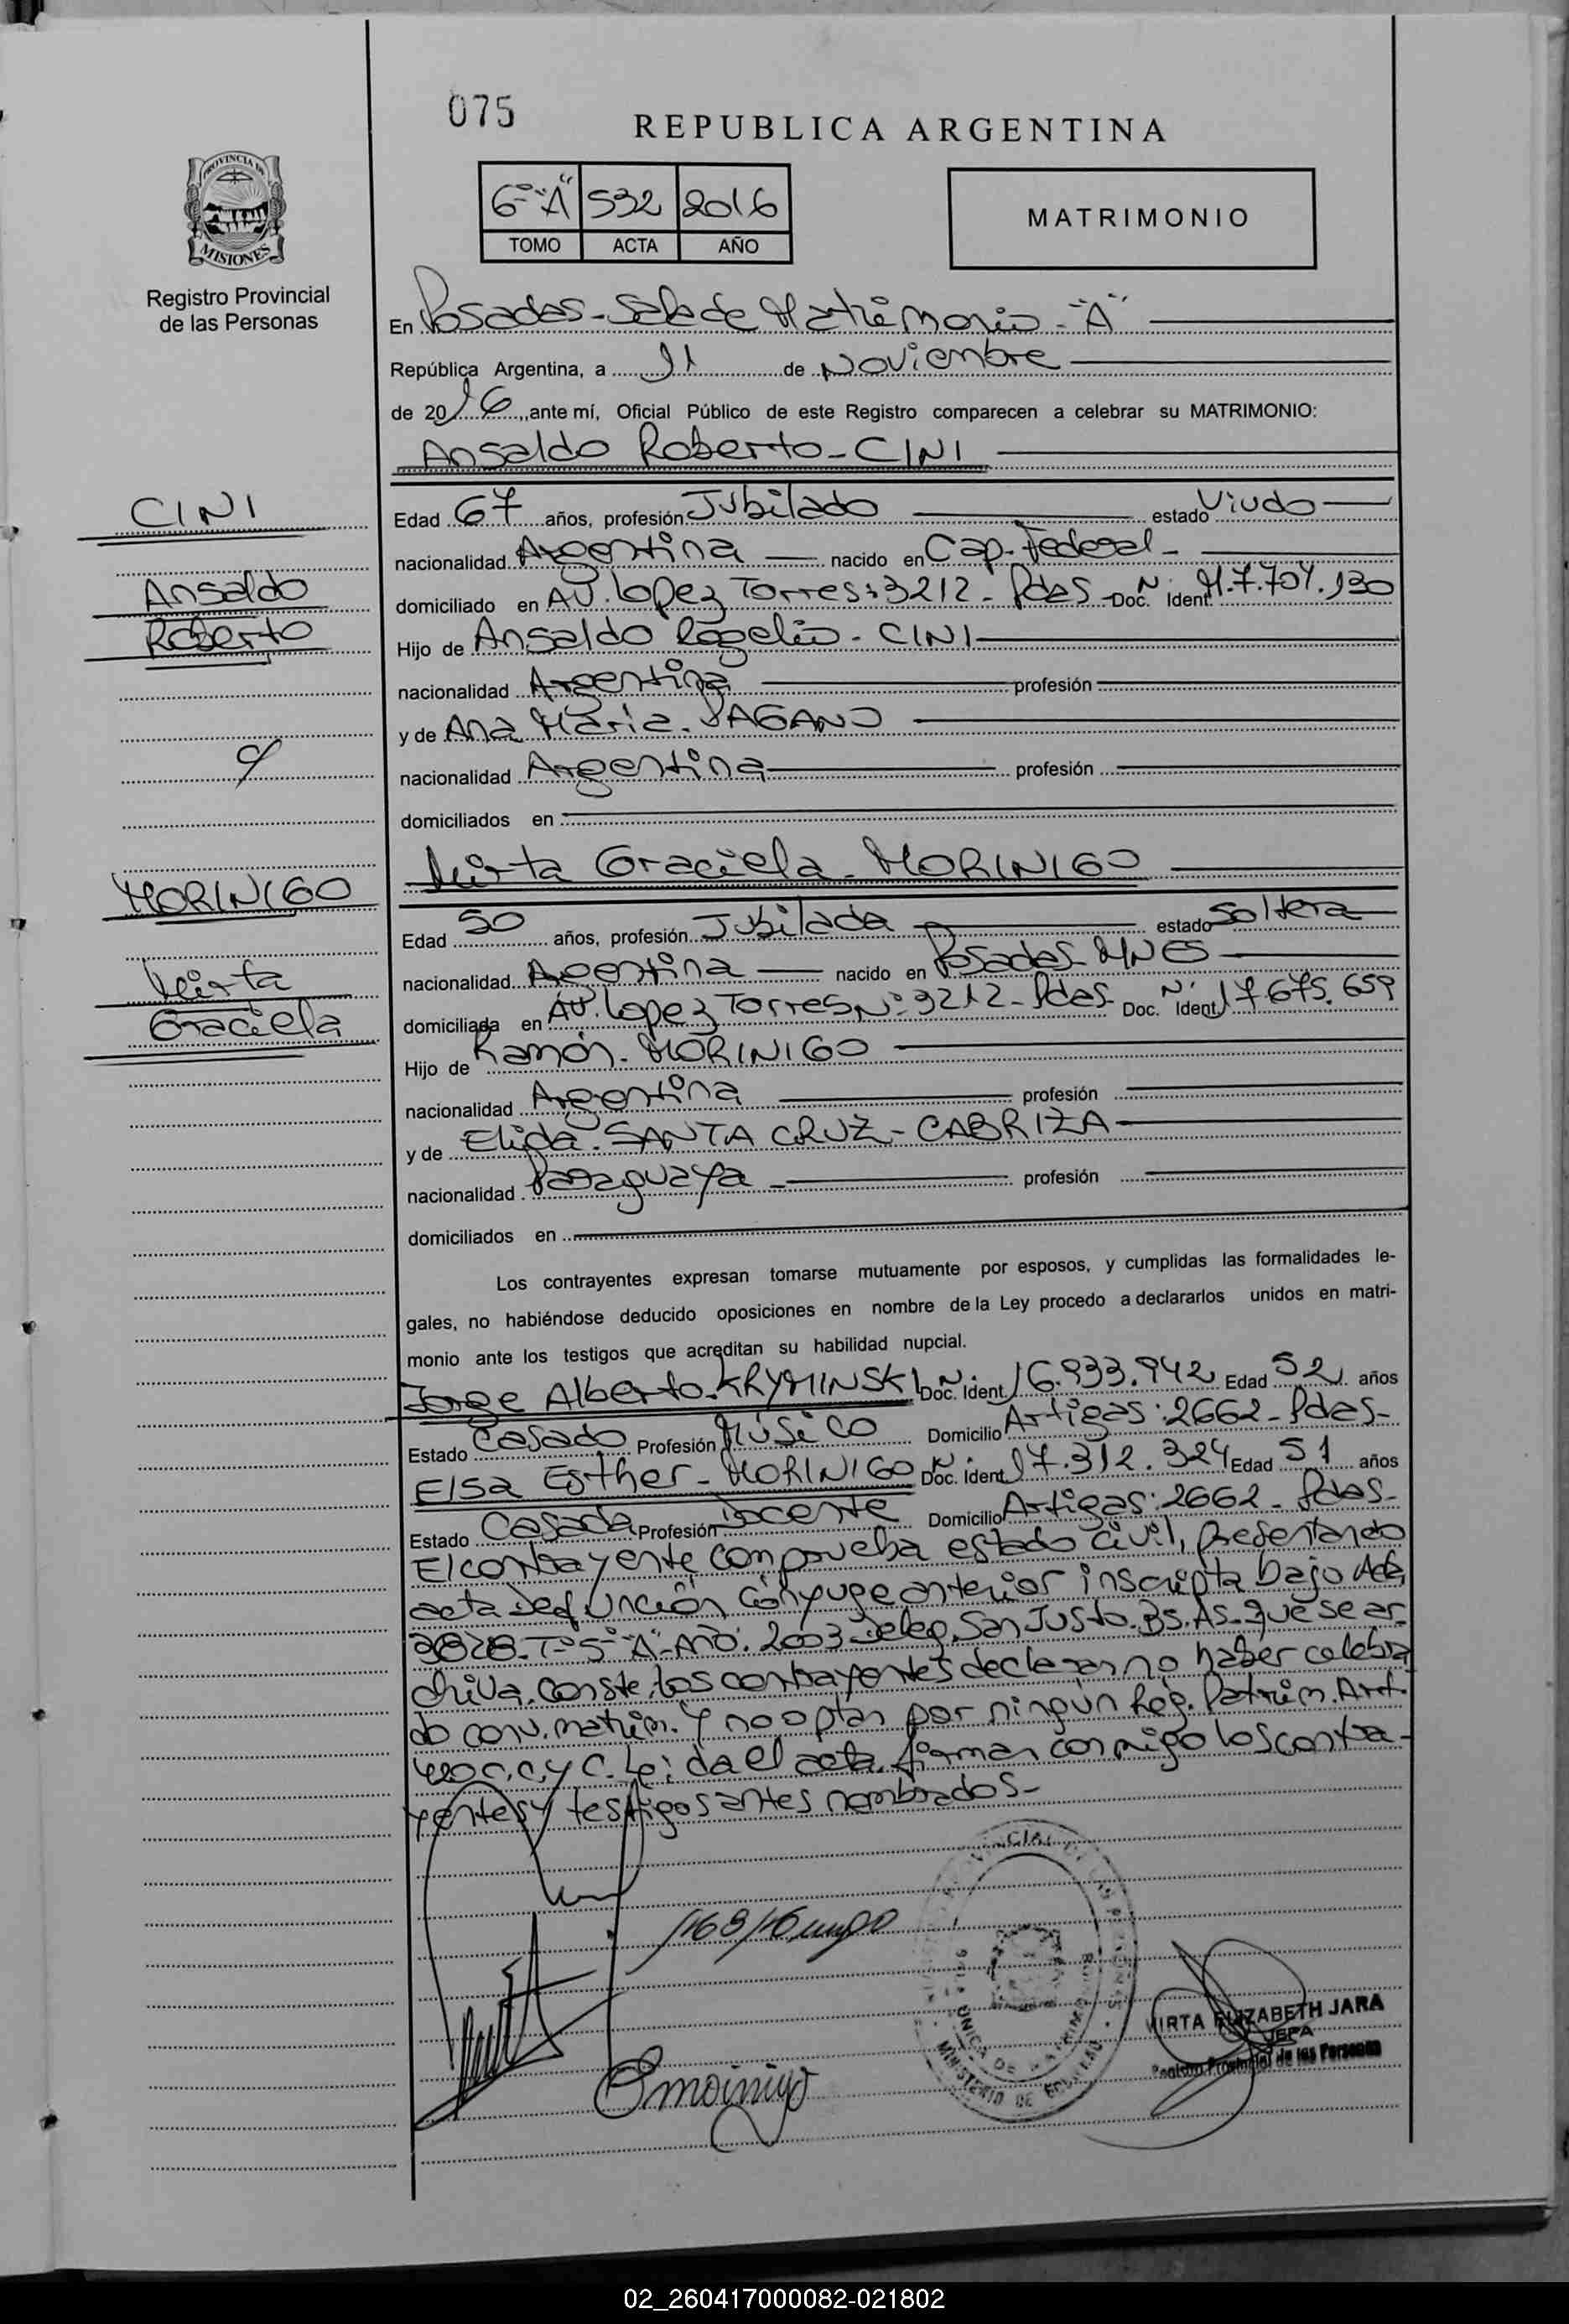 075
REPUBLICA ARGENTINA
PROVINCIA DE
MISIONES
Registro Provincial
de las Personas
6º "A" 532 2016
TOMO ACTA AÑO
MATRIMONIO
En Posadas - Sala de Matrimonio - "A"
República Argentina, a 11 de Noviembre
de 2016, ante mí, Oficial Público de este Registro comparecen a celebrar su MATRIMONIO:
Ansaldo Roberto - CINI
CINI
Ansaldo
Roberto
Edad 67 años, profesión Jubilado estado Viudo
nacionalidad Argentina nacido en Cap. Federal -
domiciliado en AV. Lopez Torres: 3212 - Pdas - Doc. Nº Ident. M.7.704.130
Hijo de Ansaldo Rogelio - CINI
nacionalidad Argentina profesión
y de Ana Maria - PAGANO
nacionalidad Argentina profesión
domiciliados en
Mirta Graciela - MORINIGO
MORINIGO
Mirta
Graciela
Edad 50 años, profesión Jubilada estado Soltera
nacionalidad Argentina nacido en Posadas - MNES
domiciliada en AV. Lopez Torres Nº 3212 - Pdas - Doc. Nº Ident 17.675.659
Hijo de Ramón - MORINIGO
nacionalidad Argentina profesión
y de Elida - SANTA CRUZ - CABRIZA
nacionalidad Paraguaya - profesión
domiciliados en
Los contrayentes expresan tomarse mutuamente por esposos, y cumplidas las formalidades le-
gales, no habiéndose deducido oposiciones en nombre de la Ley procedo a declararlos unidos en matri-
monio ante los testigos que acreditan su habilidad nupcial.
Jorge Alberto - KRYMINSKI Doc. Nº Ident 16.933.942 Edad 52 años
Estado Casado Profesión Músico Domicilio Artigas: 2662 - Pdas -
Elsa Esther - MORINIGO Doc. Nº Ident 17.312.324 Edad 51 años
Estado Casada Profesión Docente Domicilio Artigas: 2662 - Pdas -
El contrayente comprueba estado civil, presentando
acta Defunción cónyuge anterior inscripta bajo Acta
Tº 5º "A" - Año: 2003 Deleg. San Justo. Bs. As - que se ar-
chiva. Conste, los contrayentes declaran no haber celebra
do conv. matrim. y no optan por ningún Reg. Patrim. Art.
C.C. y C. Leida el acta, firman conmigo los contra-
yentes y testigos antes nombrados -
Emorinigo
MIRTA ELIZABETH JARA
JEFA
Registro Provincial de las Personas
02_260417000082-021802